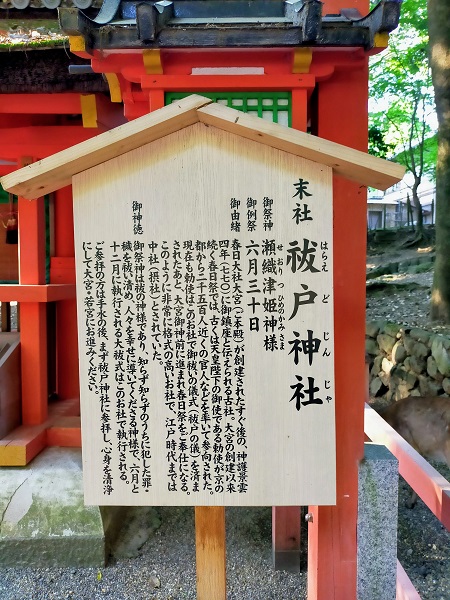 末社 祓戸神社
はらえ ど じん じゃ
御祭神 瀬織津姫神様
せおりつ ひめのかみさま
御例祭 六月三十日
御由緒 春日大社大宮（本殿）が創建されたすぐ後の、神護景雲
四年（七七〇）に御鎮座と伝えられる古社。大宮の創建以来
続く春日祭では、古くは天皇陛下の御使である勅使が京の
都から二千五百人近くの官人などを率いて参向された。
現在も勅使はこのお社で御祓いの儀式（祓戸の儀）を済ま
されたあと、大宮御神前に進まれ春日祭をご奉仕になる。
このように非常に格式の高いお社で、江戸時代までは
中社（摂社）とされていた。
御神徳 御祭神は祓の神様であり、知らず知らずのうちに犯した罪・
穢を祓い清め、人々を幸せに導いてくださる神様で、六月と
十二月に執行される大祓式はこのお社で執行される。
ご参拝の方は手水の後、まず祓戸神社に参拝し、心身を清浄
にして大宮・若宮にお進みください。